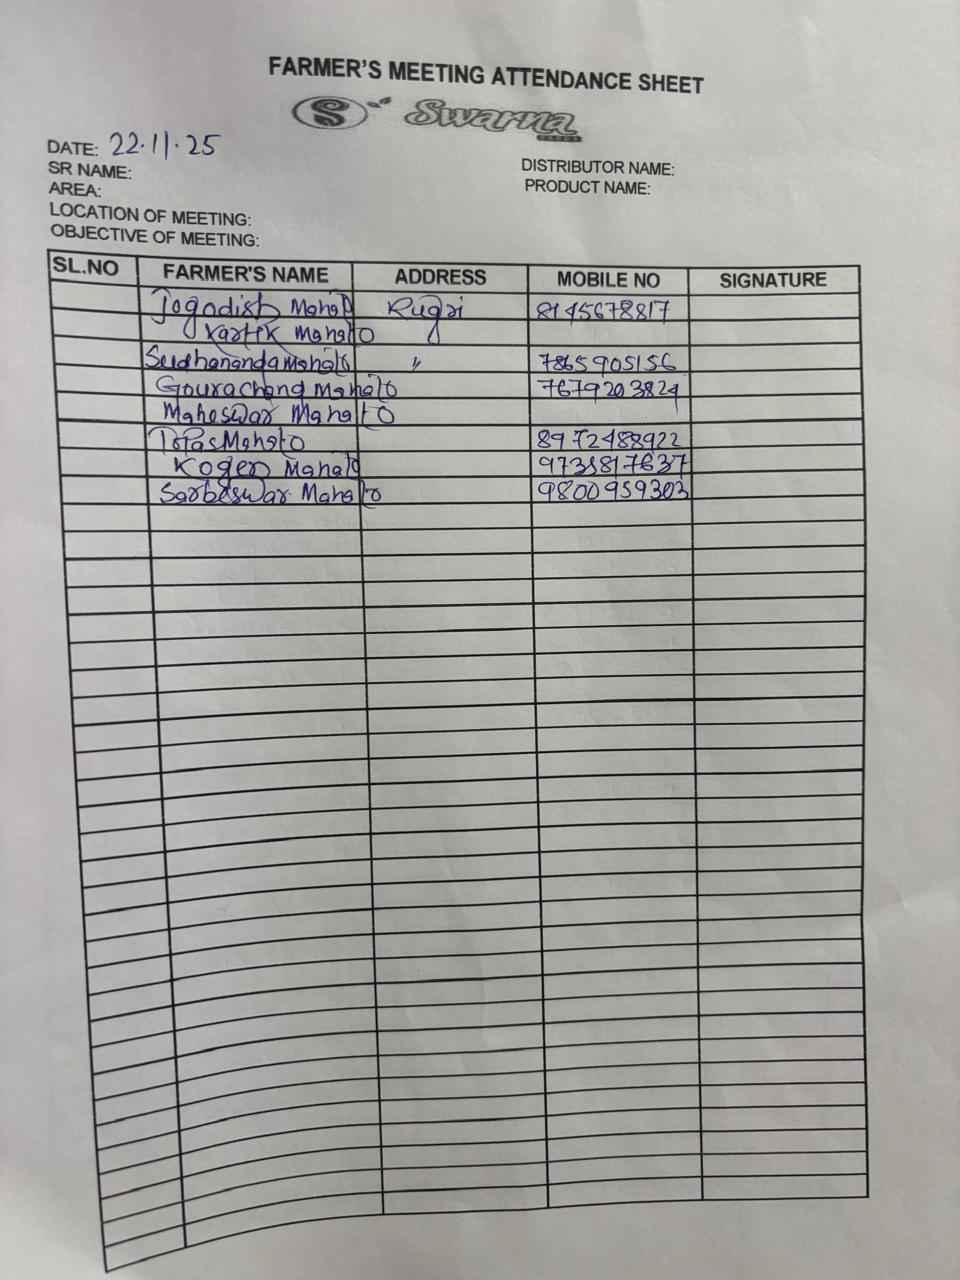 FARMER'S MEETING ATTENDANCE SHEET
S Swarna
DATE: 22.11.25
SR NAME:
AREA:
LOCATION OF MEETING:
OBJECTIVE OF MEETING:
DISTRIBUTOR NAME:
PRODUCT NAME:
SL.NO FARMER'S NAME ADDRESS MOBILE NO SIGNATURE
Jogodish Mahato Rugri 8145678817
Kartik Mahato
Sudhananda Mahato " 7865905156
Gourachand Mahato 7679203824
Maheswar Mahato
Tapas Mahato 8972488922
Kogen Mahato 9735817637
Sarbeswar Mahato 9800959303